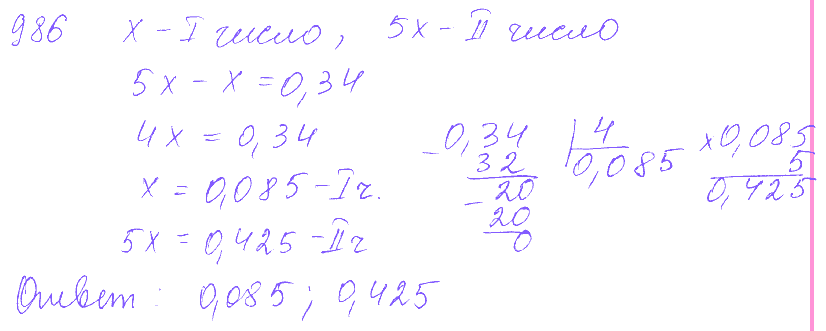 986 x – I число, 5x – II число
5x – x = 0,34
4x = 0,34
x = 0,085 – I ч.
5x = 0,425 – II ч
– 0,34 | 4
32 0,085
– 20
20
0
x 0,085
5
0,425
Ответ: 0,085; 0,425